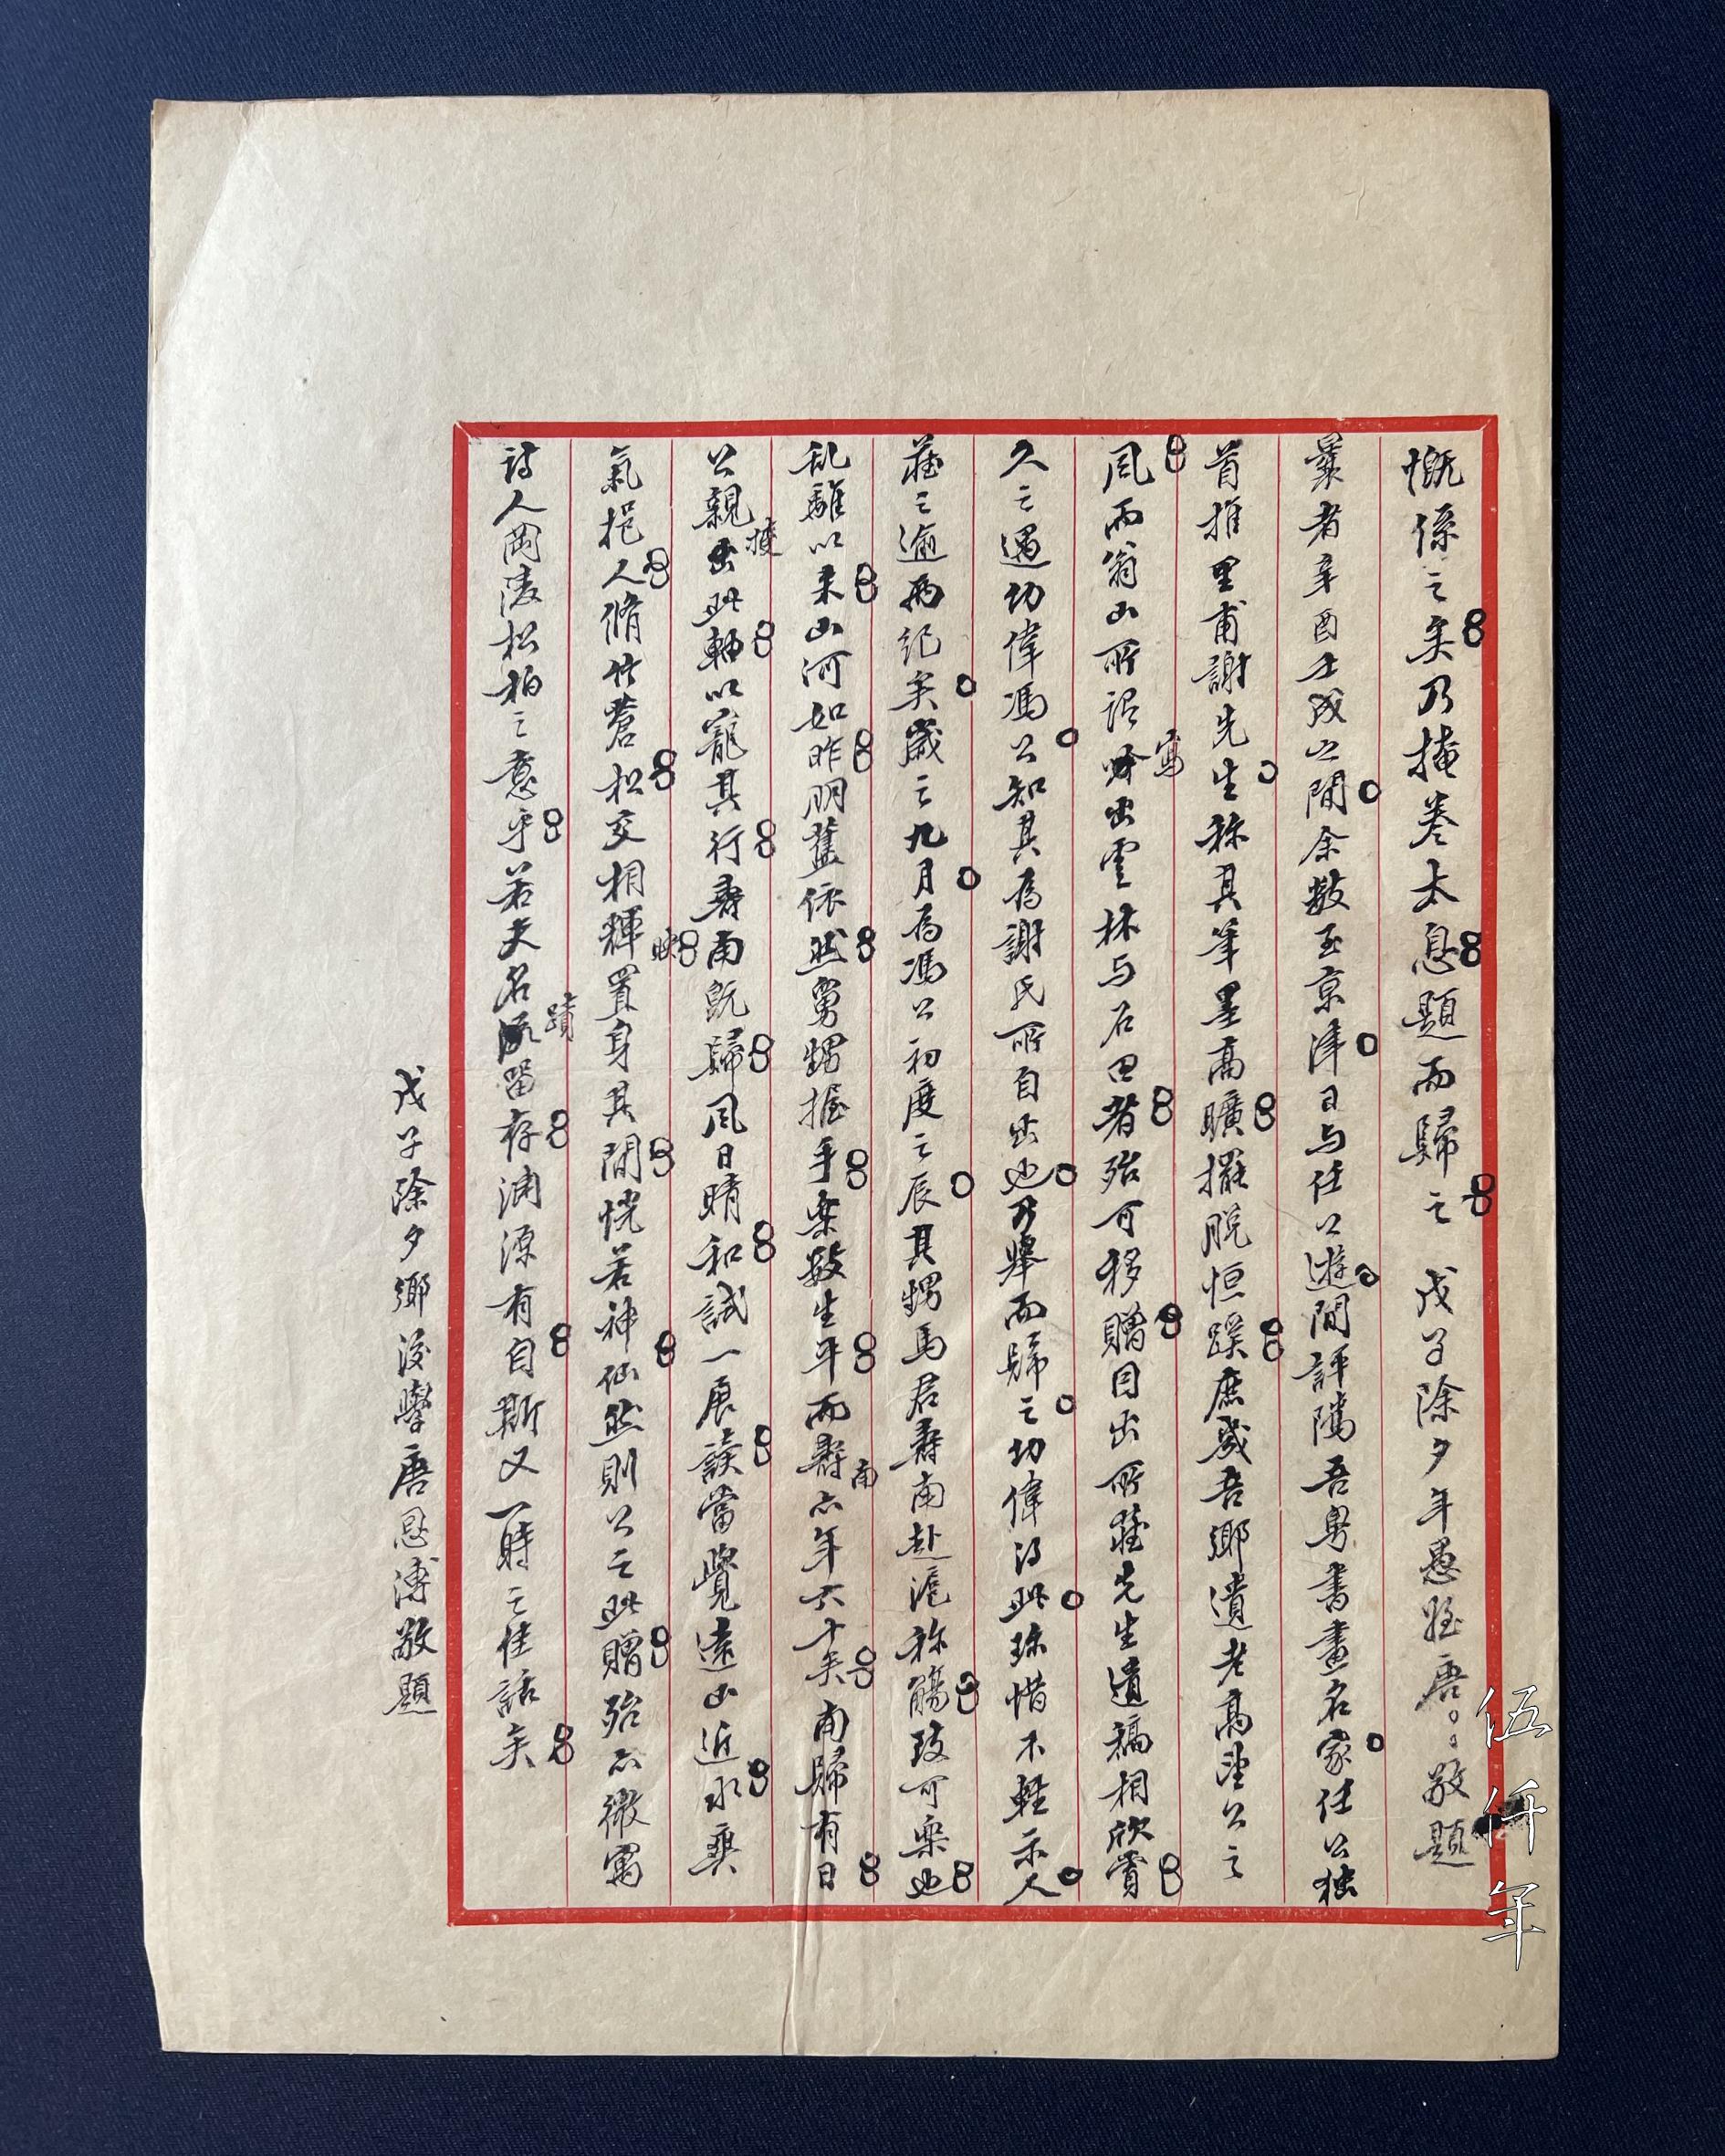 慨係之矣乃掩卷太息題而歸之 戊子除夕年愚姪唐○○敬題
曩者辛酉壬戌之間余數至京津日与任公遊間評隲吾粵書畫名家任公独
首推里甫謝先生称其筆墨高曠擺脫恒蹊庶幾吾鄉遺老高望公之
風而翁山所謂寫出雲林与石田者殆可移贈因出所藏先生遺稿相欣賞
久之遇切偉馮公知其為謝氏所自出也乃舉而歸之切偉得此珍惜不輕示人
藏之逾兩紀矣歲之九月為馮公初度之辰其甥馬君壽南赴滬称觴致可樂也
乱離以來山河如昨朋舊依然舅甥握手樂數生平而壽南亦年六十矣南歸有日
公親撿出此軸以寵其行壽南既歸風日晴和試一展讀當覺遠山近水爽
氣挹人脩竹蒼松交相輝映置身其間恍若神仙然則公之此贈殆亦微寓
詩人岡陵松柏之意乎若夫名蹟留存淵源有自斯又一時之佳話矣
戊子除夕鄉後學唐恩溥敬題
伍仟年